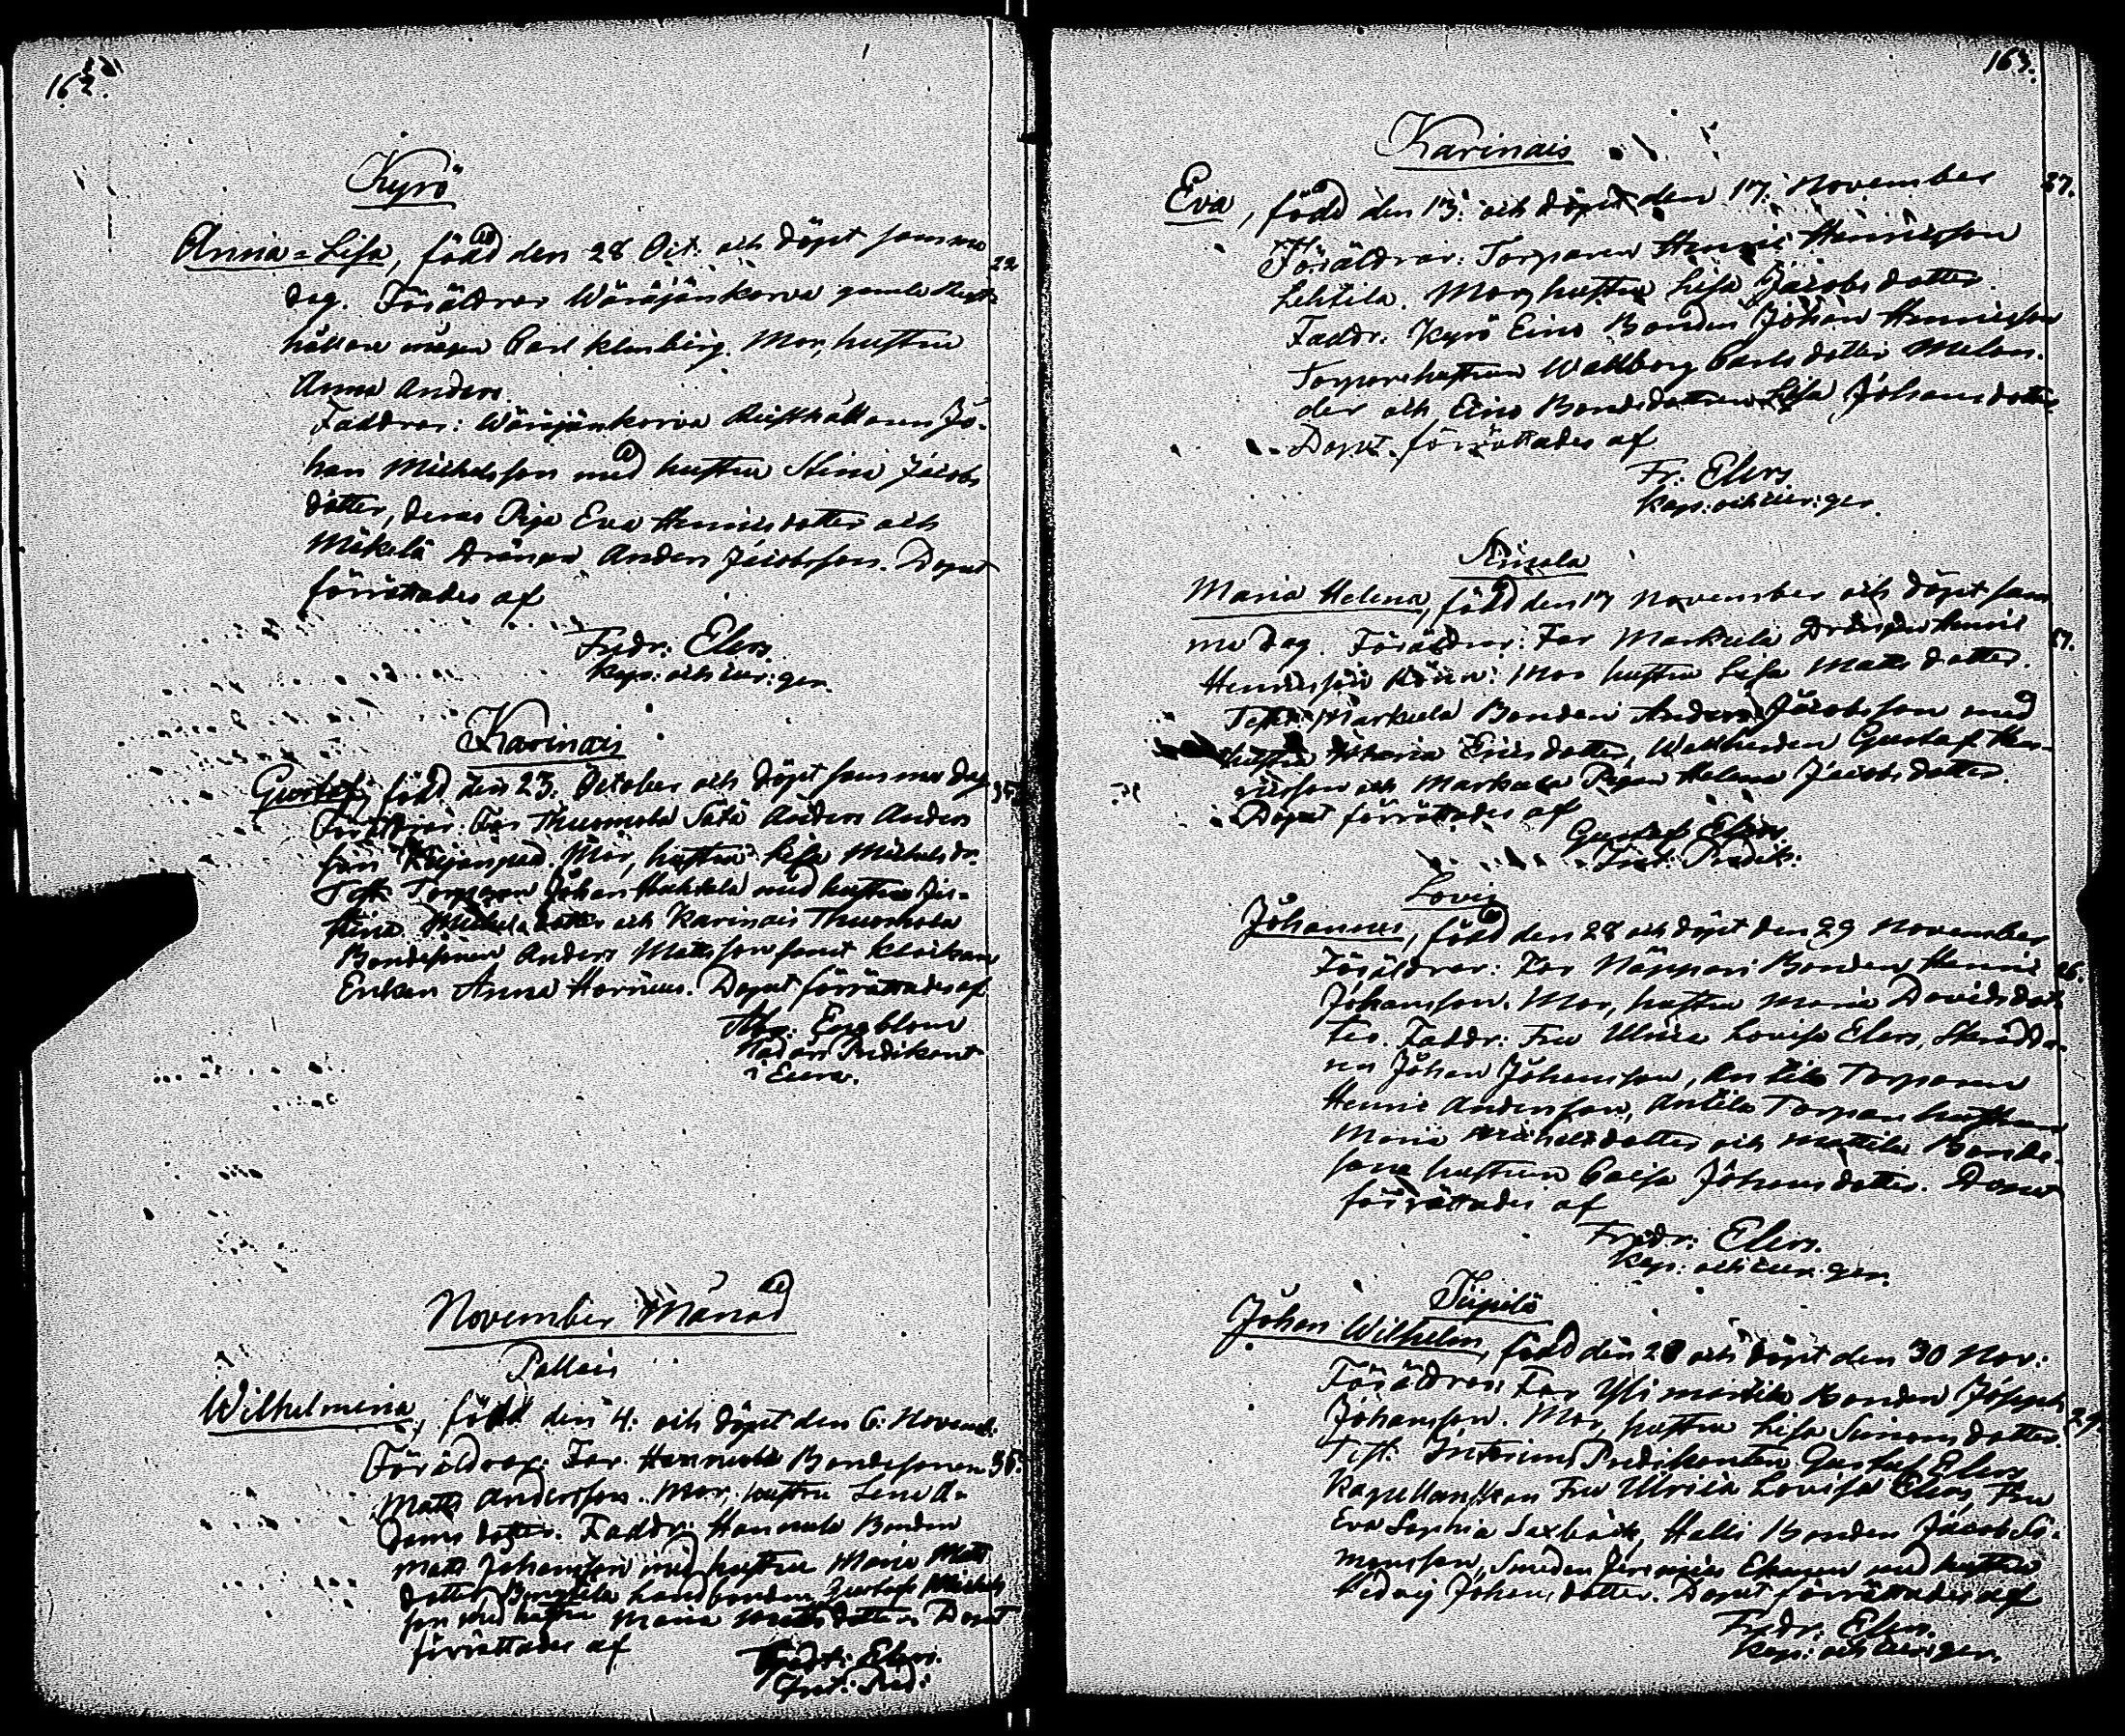 162.
Kyrö
Anna=Lisa, född den 28 Oct. och döpt samma
22
dag. Föräldrar Wäräjänkorva gamle Rust-
hållare mågen Carl Klenberg. Mor, hustru
Anna Anders.
Faddrar: Wäräjänkorva Rusthållaren Jo-
han Michelsson med hustru Stina Jacobs
dotter, deras Piga Eva Henricsdotter och
Mäkelä Drängen Anders Jacobsson. Dopet
förrättades af
Fredr: Elers.
Kap: och cur: ger.
Karinais
Gustaf, född den 23. October och döpt samma dag
35.
Föräldrar: Far Thuomola Sätä Anders Anders
son. Mor, hustru Lisa Michelsdr.
Test: Torparen Johan Hahkala med hustru Jus-
tina Michelsdotter och Karinais Thuomola
Bondesonen Anders Mattsson samt Klockare
Enkan Anna Hornæus. Dopet förrättades af
Abr: Engblom
Nådårs Predikant
i Eura.
November Månad
Pallais
Wilhelmina, född den 4. och döpt den 6. Novemb.
Föräldrar: Far Hannula Bondesonen
36.
Matts Andersson. Mor, hustru Lena A-
dams dotter. Faddr: Hannula Bonden
Matts Johansson med hustru Maria Matts
dotter, landbonden Gustaf Michels
son med hustru Maria Mattsdotter. Dopet
förrättades af
Gust: Elers.
Int: Pred:
163.
Karinais
Eva, född den 13. och döpt den 17. November
37.
Föräldrar: Torparen Henric Henricsson
Lehtila. Mor, hustru Lisa Jacobsdotter.
Faddr: Kyrö Eino Bonden Johan Henricsson
Torparehustrun Wallborg Carlsdotter Melan-
der och Eino Bondedottren Lisa Johansdotter
Dopet förrättades af
Fr: Elers
Kap: och cur: ger.
Maria Helena, född den 17 November och döpt sam-
ma dag. Föräldrar: Far Markula Drängen Henric
27.
Henricsson. Mor hustru Lisa Mattsdotter.
Test: Markula Bonden Anders Jacobsson med
hustru Maria Ericsdotter, Gustaf Hen-
ricsson och Markula Pigan Helena Jacobsdotter.
Dopet förrättades af
Gustaf Elers
Int: Predik:
Lovis
Johannes, född den 28 och döpt den 29 November
26.
Föräldrar: Far Näppari Bonden Henric
Johansson. Mor, hustru Maria Davidsdot-
ter. Faddr: Fru Ulrica Lovisa Elers, Skrädda-
ren Johan Johansson, Antila Torparen
Henric Andersson, Antila Torpare hustrun
Maria Michelsdotter och Mattila Bonde-
sone hustrun Caisa Johansdotter. Dopet
förrättades af
Fredr: Elers.
Kap: och cur: ger.
Johan Wilhelm, född den 28 och döpt den 30 Nov:
Föräldrar: Far Ylimarkila Bonden Joseph
29.
Johansson. Mor, hustru Lisa Simonsdotter.
Test: Interims Predikanten Gustaf Elers
Kapellanskan Fru Ulrica Lovisa Elers, Fru
Eva Sophia Saxbäck, Halli Bonden Jacob Si-
monsson, Smeden Jeremias Ekman med hustru
Hedvig Johansdotter. Dopet förrättades af
Fredr: Elers.
Kap: och cur: ger.